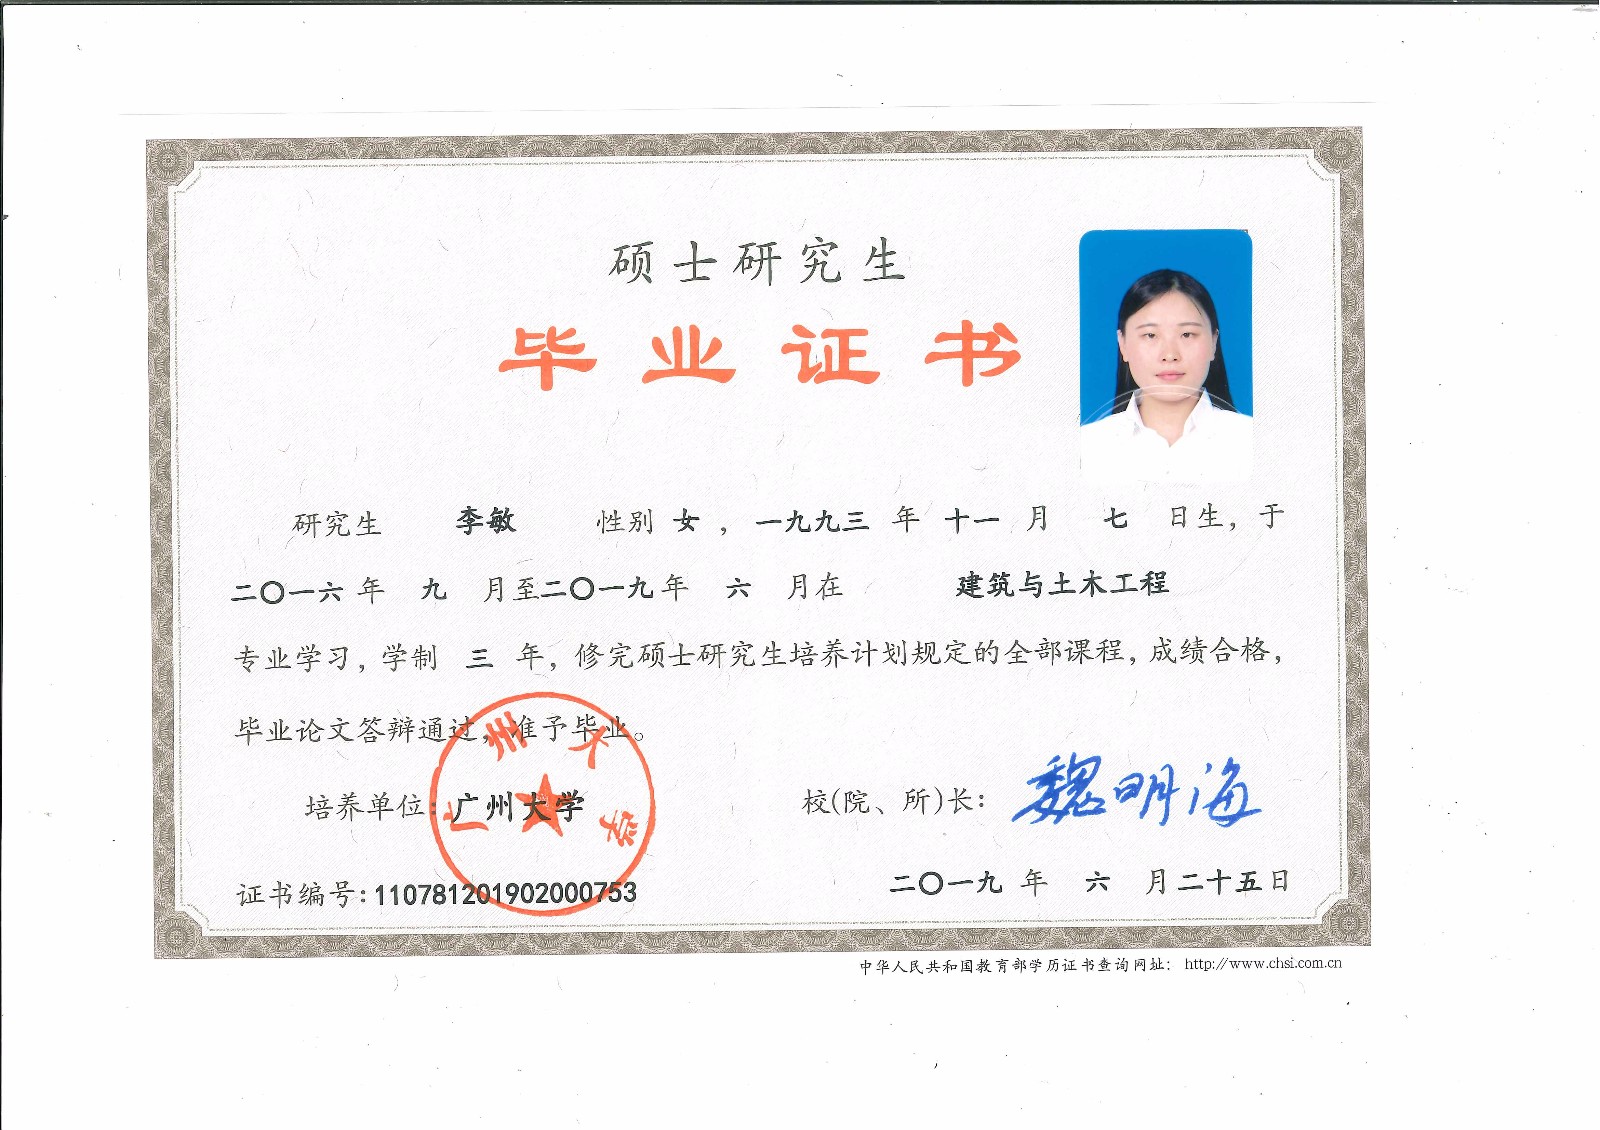 硕士研究生
毕业证书
研究生 李敏 性别 女 ，一九九三 年 十一 月 七 日生，于
二〇一六 年 九 月至二〇一九年 六 月在 建筑与土木工程
专业学习，学制 三 年，修完硕士研究生培养计划规定的全部课程，成绩合格，
毕业论文答辩通过，准予毕业。
广州大学
培养单位：广州大学
校(院、所)长： 魏明海
证书编号：110781201902000753
二〇一九 年 六 月二十五日
中华人民共和国教育部学历证书查询网址： http://www.chsi.com.cn